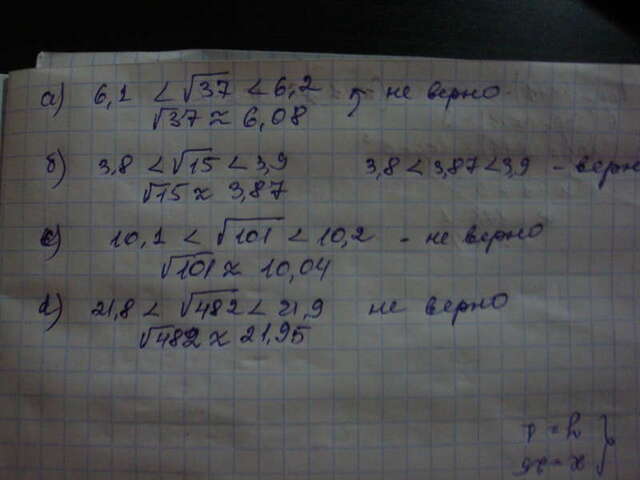 а) 6,1 < √37 < 6,2 не верно
√37 ≈ 6,08
б) 3,8 < √15 < 3,9 3,8 < 3,87 < 3,9 - верно
√15 ≈ 3,87
с) 10,1 < √101 < 10,2 - не верно
√101 ≈ 10,04
d) 21,8 < √482 < 21,9 не верно
√482 ≈ 21,95